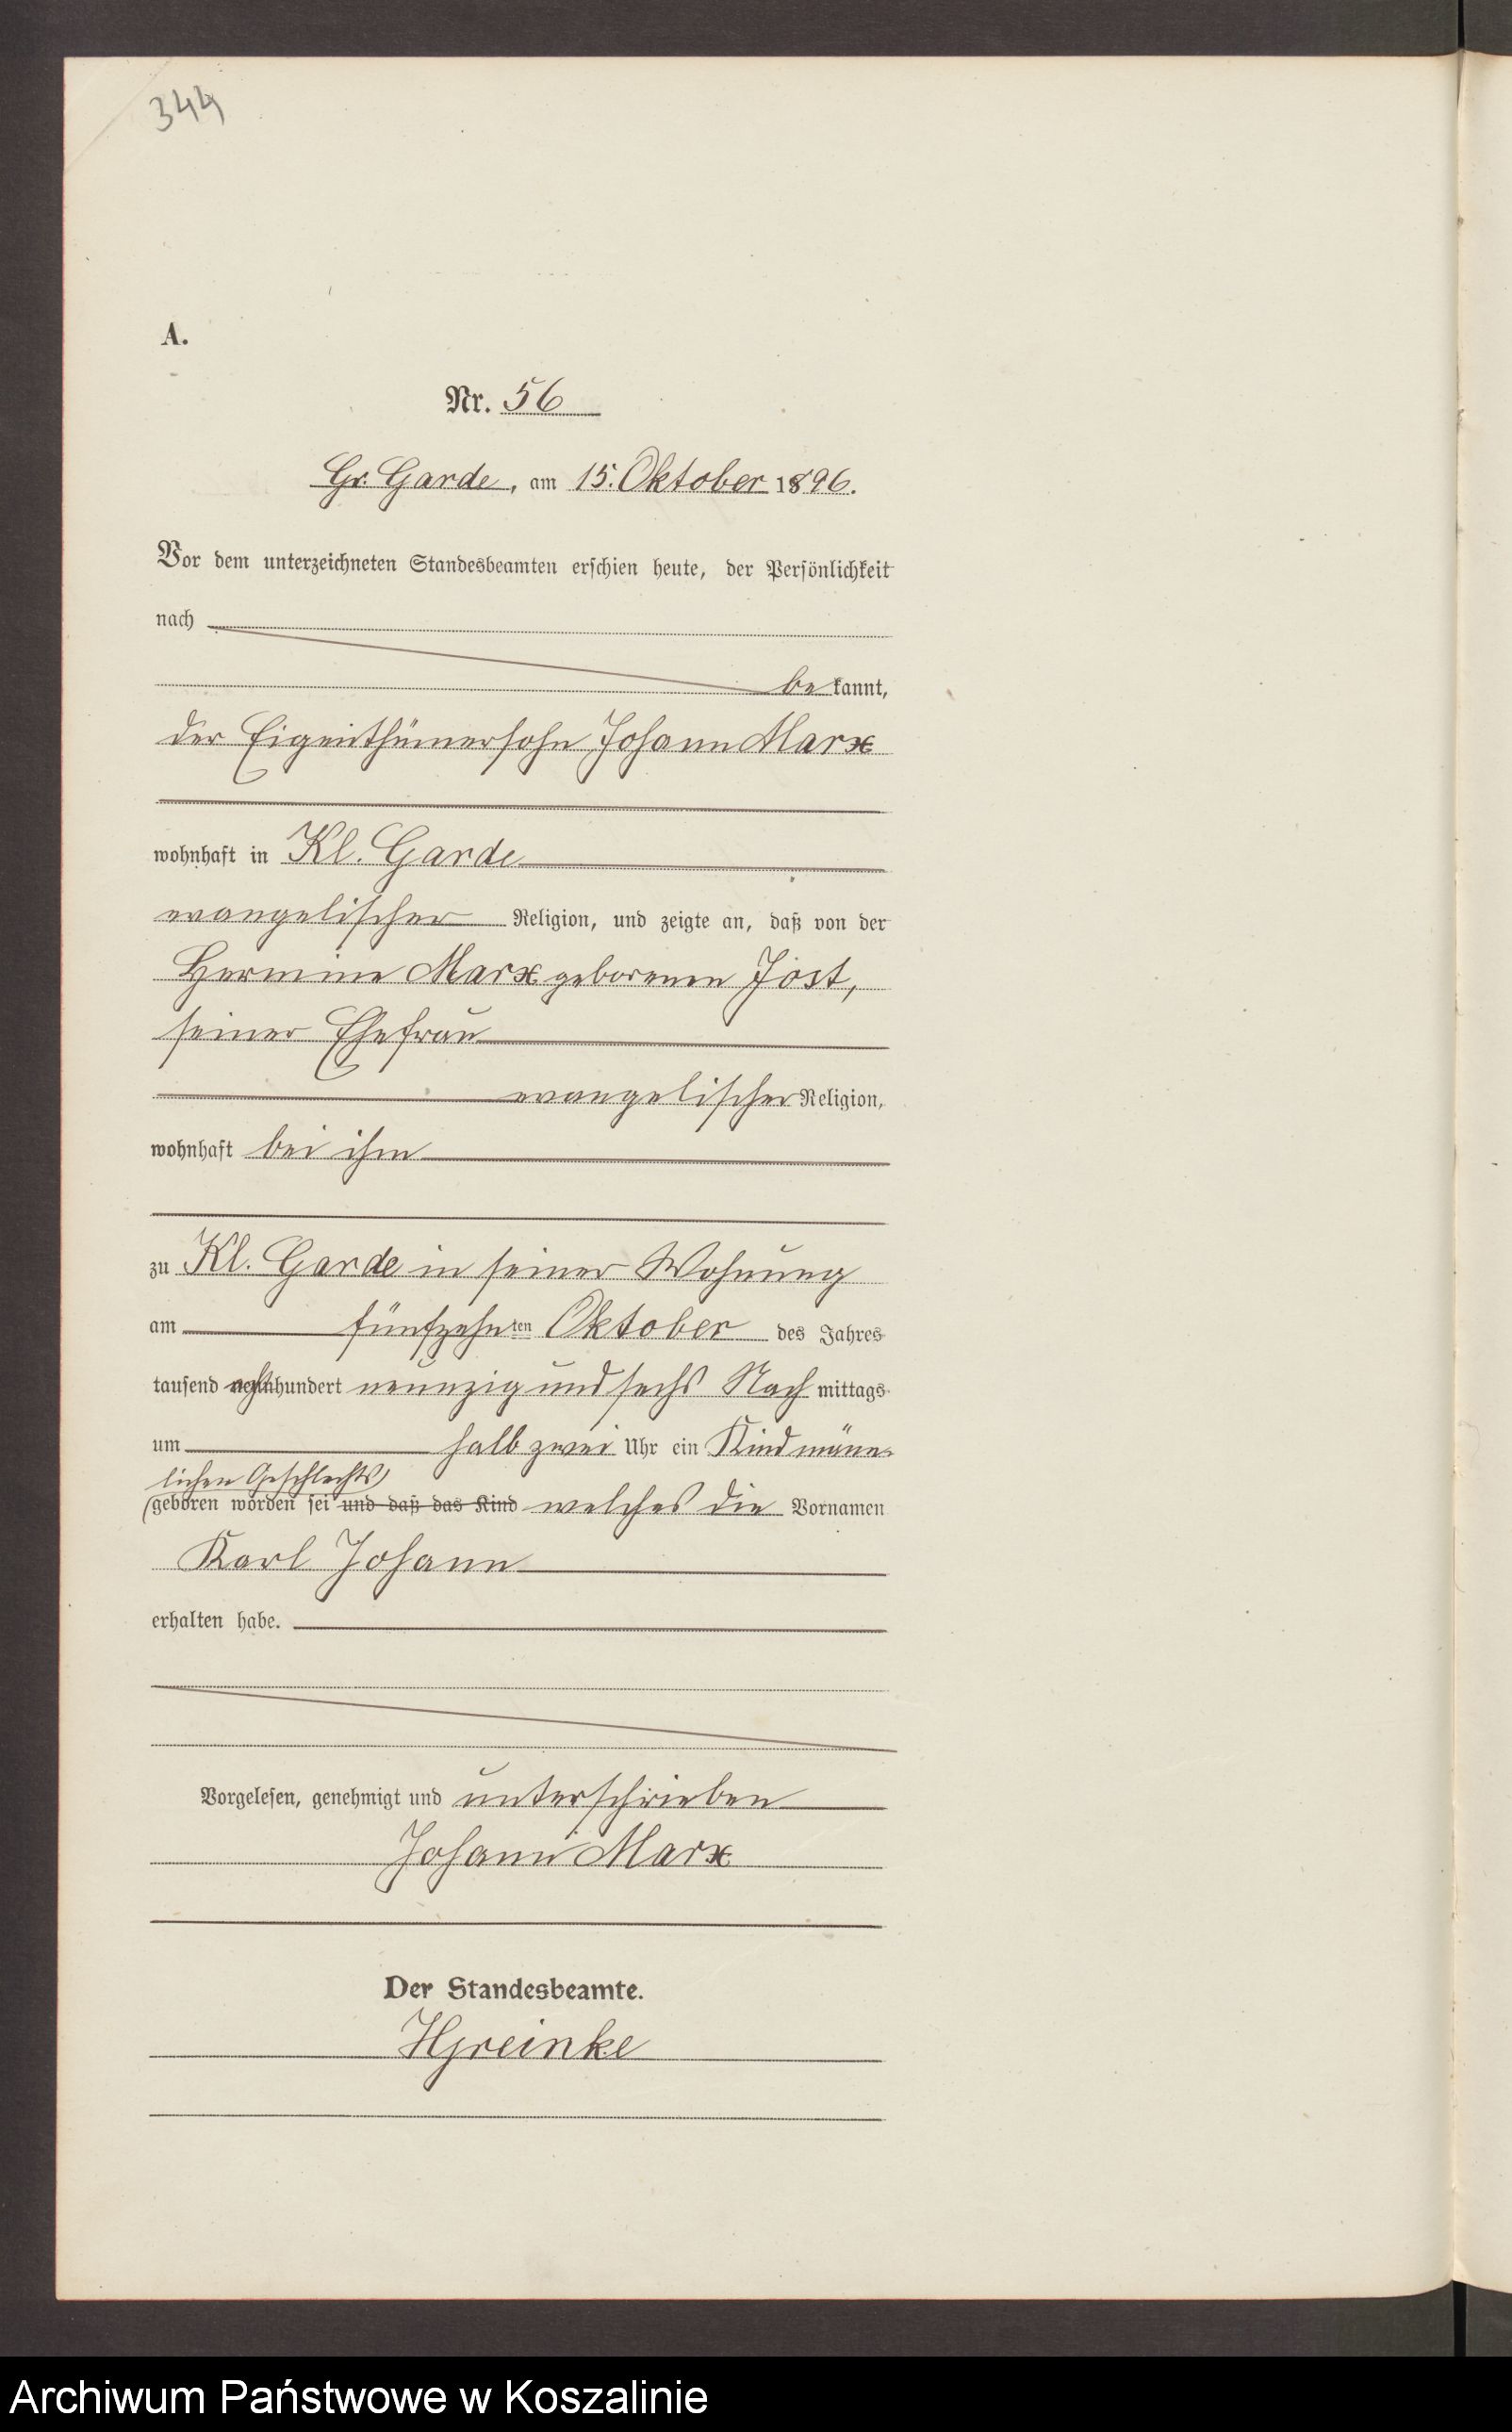 344
A.
Nr. 56
Gr. Garde, am 15. Oktober 1896.
Vor dem unterzeichneten Standesbeamten erschien heute, der Persönlichkeit
nach
bekannt,
der Eigenthümersohn Johann Marx
wohnhaft in Kl. Garde
evangelischer Religion, und zeigte an, daß von der
Hermine Marx geborenen Jost,
seiner Ehefrau
evangelischer Religion,
wohnhaft bei ihm
zu Kl. Garde in seiner Wohnung
am fünfzehnten Oktober des Jahres
tausend achthundert neunzig und sechs Nachmittags
um halb zwei Uhr ein Kind männ-
lichen Geschlechts
geboren worden sei und daß das Kind welches die Vornamen
Karl Johann
erhalten habe.
Vorgelesen, genehmigt und unterschrieben
Johann Marx
Der Standesbeamte.
Archiwum Państwowe w Koszalinie